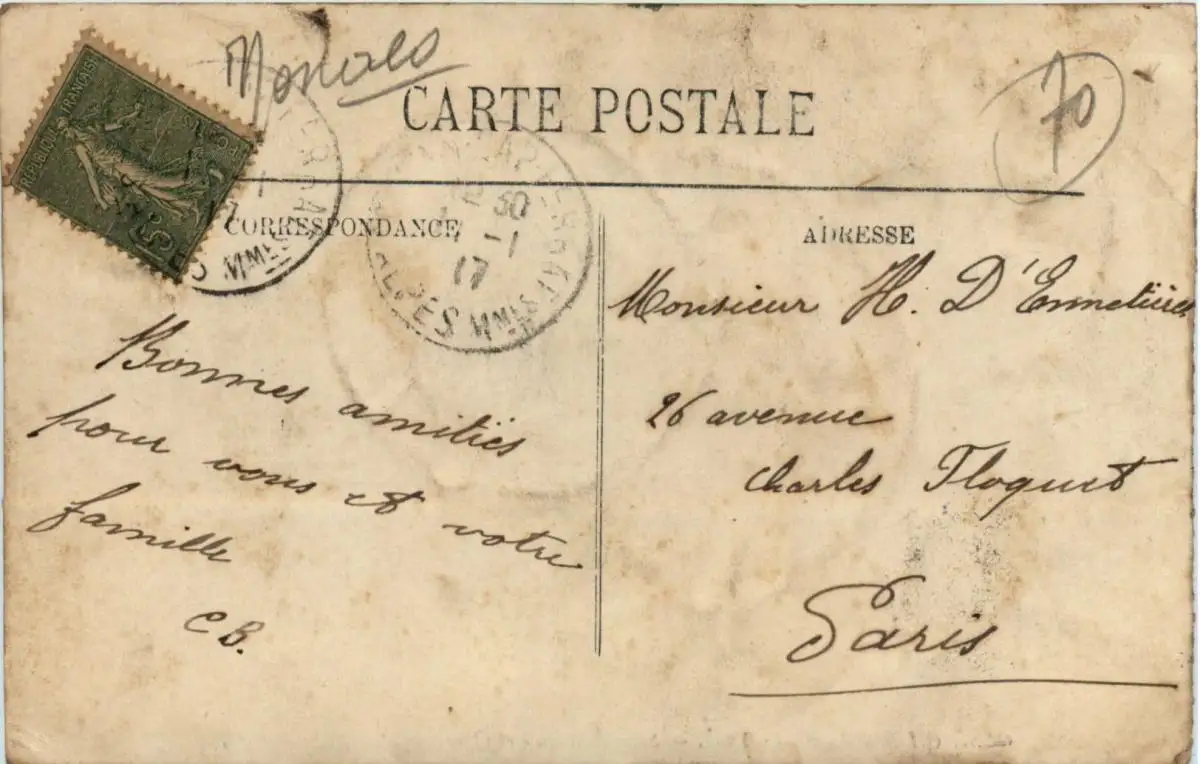 70
CARTE POSTALE
RÉPUBLIQUE FRANÇAISE
POSTES
15
CORRESPONDANCE
ADRESSE
30
1-1
17
ALPES MMES
Bonnes amitiés
pour vous et votre
famille
C B.
Monsieur H. D'Ennetières
26 avenue
Charles Floquet
Paris